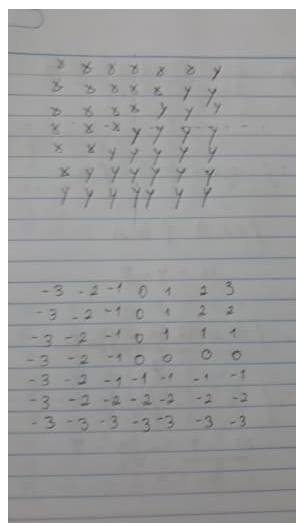 x x x x x x y
x x x x x y y
x x x x y y y
x x x y y y y
x x y y y y y
x y y y y y y
y y y y y y y
-3 -2 -1 0 1 2 3
-3 -2 -1 0 1 2 2
-3 -2 -1 0 1 1 1
-3 -2 -1 0 0 0 0
-3 -2 -1 -1 -1 -1 -1
-3 -2 -2 -2 -2 -2 -2
-3 -3 -3 -3 -3 -3 -3